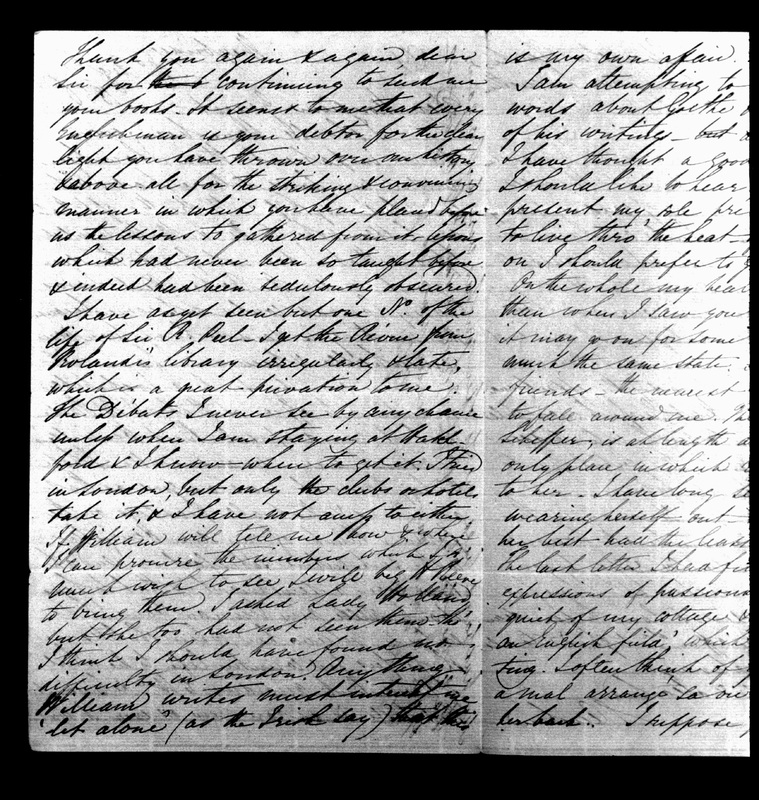 Thank you again & again, dear
Sir for continuing to send me
your books. It seems to me that every
Englishman is your debtor for the clear
light you have thrown over our history
& above all for the striking & convincing
manner in which you have placed before
us the lessons to gathered from it - lessons
which had never been so taught before
& indeed had been sedulously obscured.
I have as yet seen but one No. of the
life of Sir R. Peel - I get the Revue from
Rolandi's library irregularly & late,
which is a great privation to me.
The Débats I never see by any chance
unless when I am staying at
& I know where to get it. I tried
in London, but only the clubs or hotels
take it, & I have not access to either
If William will tell me how & where
I can procure the numbers which I so
much wish to see, I will beg
to bring them. I asked Lady Holland
but she too had not seen them tho'
I think I should have found no
difficulty in London. Anything
William writes must interest me
'let alone' (as the Irish say) that the
is my own affair.
I am attempting to
words about Goethe
of his writings - but
I have thought a good
I should like to hear
present my sole pre
to live thro' the heat -
on I should prefer to
On the whole my hear
than when I saw you
it may go on for some
much the same state.
friends - the nearest
to fall around me. The
Scheffer, is at length
only place in which
to her - I have long
wearing herself out -
her best had the
The last letter I had
expressions of passiona
quiet of my cottage &
an English field, which
ting. I often think of
a mal arrangé sa vie
her back. I suppose